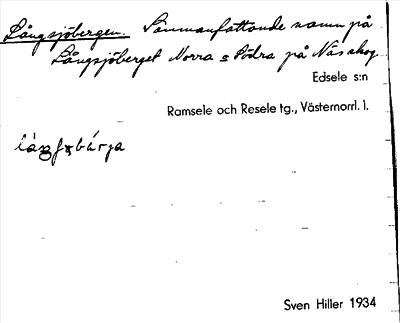 Långsjöbergen. Sammanfattande namn på
Långsjöberget Norra o Södra på Nässkog
Edsele s:n
Ramsele och Resele tg., Västernorrl. l.
Sven Hiller 1934